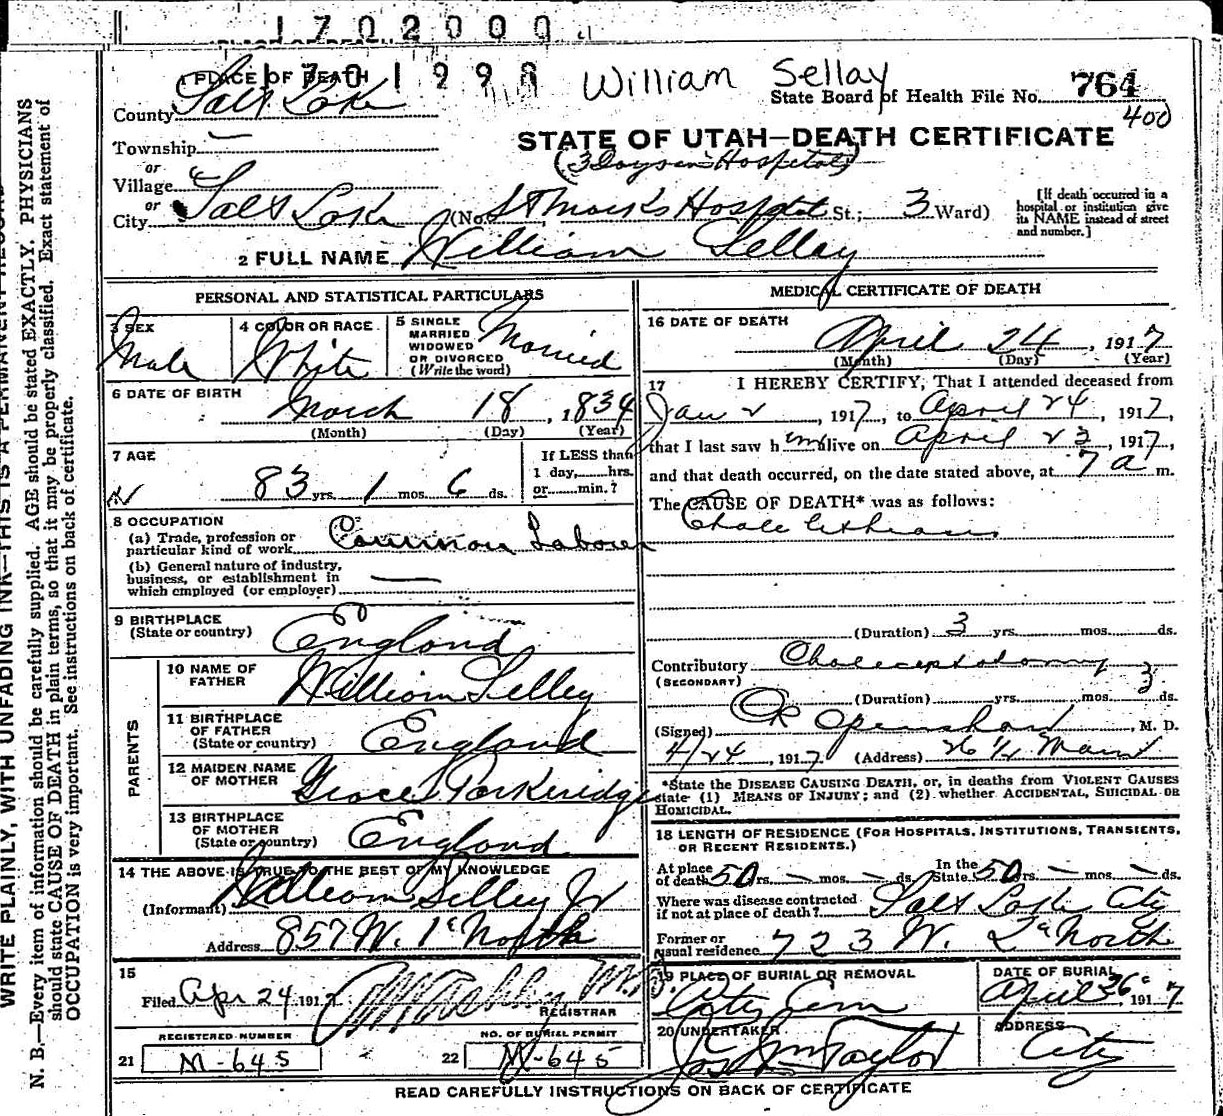 1702000
1701998
William Sellay
State Board of Health File No. 764
400
1 PLACE OF DEATH
County Salt Lake
STATE OF UTAH—DEATH CERTIFICATE
Township
(3 Days in Hospital)
or
Village
or
City Salt Lake (No. St Marks Hospital St.; 3 Ward)
[If death occurred in a hospital or institution give its NAME instead of street and number.]
2 FULL NAME William Sellay
PERSONAL AND STATISTICAL PARTICULARS
3 SEX
Male
4 COLOR OR RACE
White
5 SINGLE
MARRIED
WIDOWED
OR DIVORCED
(Write the word)
Married
6 DATE OF BIRTH
March 18, 1834
(Month) (Day) (Year)
7 AGE
83 yrs. 1 mos. 6 ds.
If LESS than
1 day,......hrs.
or......min.?
8 OCCUPATION
(a) Trade, profession or
particular kind of work Common Laborer
(b) General nature of industry,
business, or establishment in
which employed (or employer)
9 BIRTHPLACE
(State or country) England
PARENTS
10 NAME OF
FATHER William Selley
11 BIRTHPLACE
OF FATHER
(State or country) England
12 MAIDEN NAME
OF MOTHER Grace Parkeridge
13 BIRTHPLACE
OF MOTHER
(State or country) England
14 THE ABOVE IS TRUE TO THE BEST OF MY KNOWLEDGE
(Informant) William Selley Jr
Address 857 W. 1st North
15
Filed Apr 24 1917
REGISTRAR
REGISTERED NUMBER
21 M-645
NO. OF BURIAL PERMIT
22 M-645
MEDICAL CERTIFICATE OF DEATH
16 DATE OF DEATH
April 24, 1917
(Month) (Day) (Year)
17 I HEREBY CERTIFY, That I attended deceased from
Jan 2, 1917, to April 24, 1917,
that I last saw him alive on April 23, 1917,
and that death occurred, on the date stated above, at 7 a m.
The CAUSE OF DEATH* was as follows:
(Duration) 3 yrs. mos. ds.
Contributory
(SECONDARY)
(Duration) yrs. mos. 3 ds.
(Signed) Openshaw, M. D.
4/24, 1917 (Address) 26 1/2 Main
*State the DISEASE CAUSING DEATH, or, in deaths from VIOLENT CAUSES
state (1) MEANS OF INJURY; and (2) whether ACCIDENTAL, SUICIDAL OR
HOMICIDAL.
18 LENGTH OF RESIDENCE (FOR HOSPITALS, INSTITUTIONS, TRANSIENTS,
OR RECENT RESIDENTS.)
At place
of death 50 yrs. — mos. — ds. In the State 50 yrs. — mos. — ds.
Where was disease contracted
if not at place of death? Salt Lake City
Former or
usual residence 723 W. 2d North
19 PLACE OF BURIAL OR REMOVAL
City Cem
DATE OF BURIAL
April 26, 1917
20 UNDERTAKER
Jos Wm Taylor
ADDRESS
City
READ CAREFULLY INSTRUCTIONS ON BACK OF CERTIFICATE
WRITE PLAINLY, WITH UNFADING INK—THIS IS A PERMANENT RECORD
N. B.—Every item of information should be carefully supplied. AGE should be stated EXACTLY. PHYSICIANS
should state CAUSE OF DEATH in plain terms, so that it may be properly classified. Exact statement of
OCCUPATION is very important. See instructions on back of certificate.